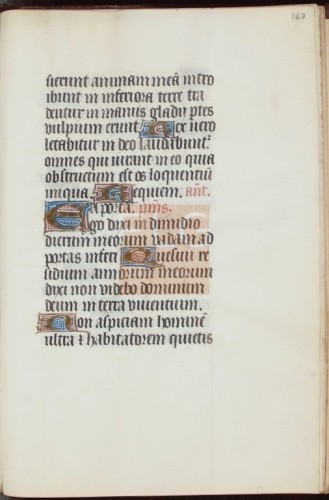 167
sierunt animam meā intro
ibunt in inferiora terre tra
dentur in manus gladii ptes
vulpium erunt. Rex vero
letabitur in deo laudabunt
omnes qui iurant in eo quia
obstructum est os loquentiū
iniqua. Requiem. añt.
A porta. p̄mus.
Ego dixi in dimidio
dierum meorum vadam ad
portas inferi Quesiui re
siduum annorum meorum
dixi non videbo dominum
deum in terra viventium.
Non aspiciam hominē
ultra ⁊ habitatorem quietis